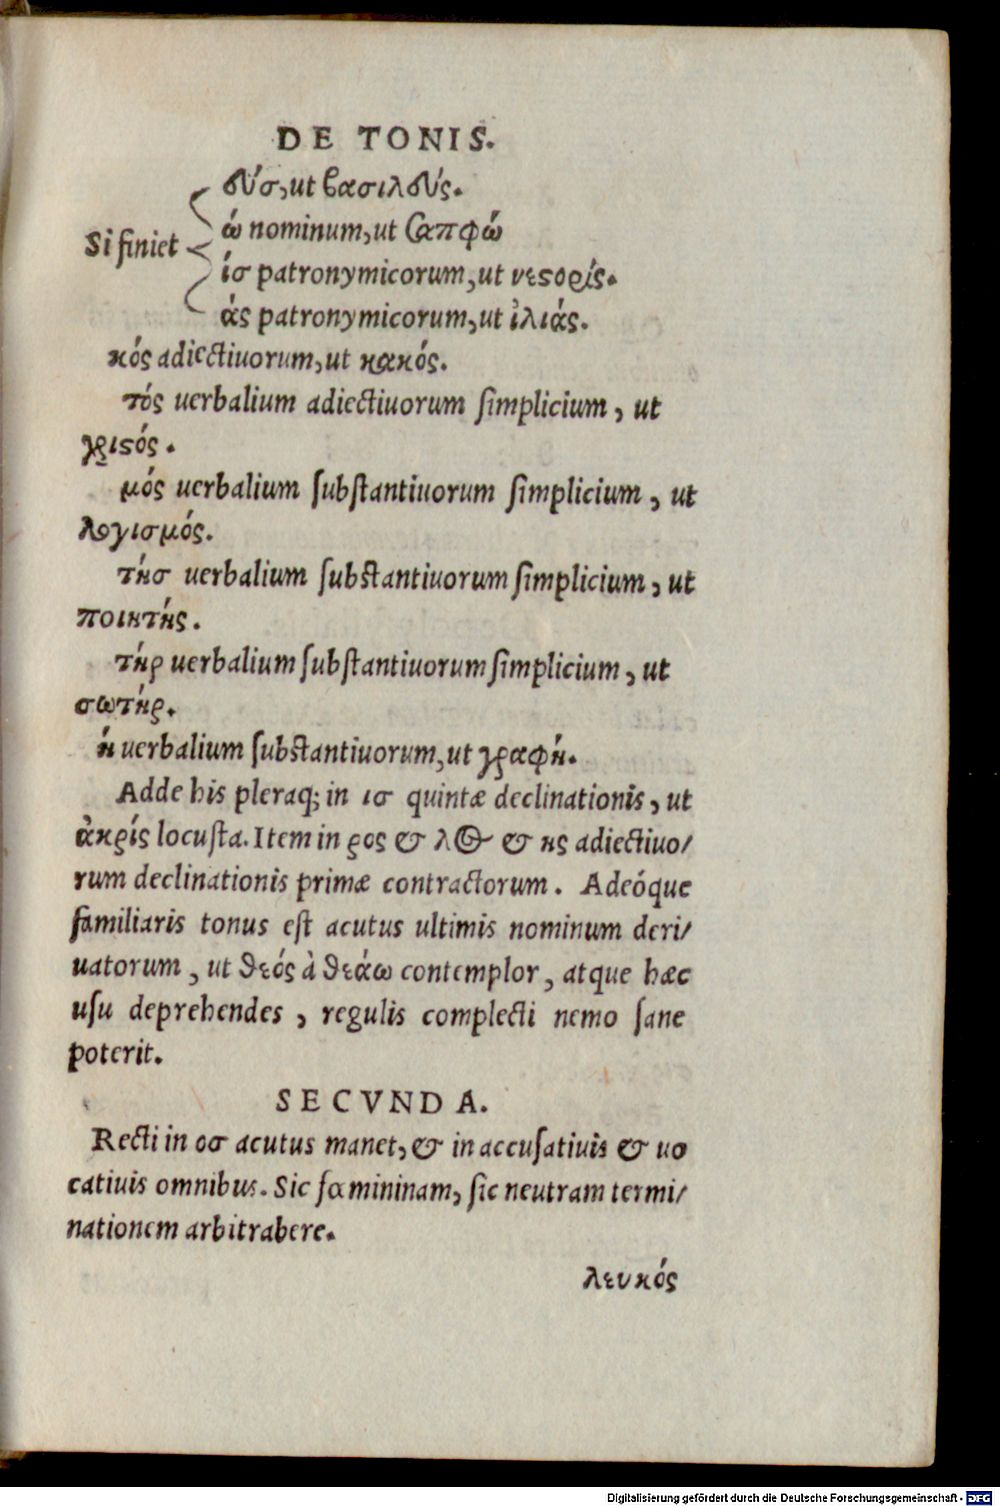 DE TONIS.
εύσ, ut βασιλεύς.
ώ nominum, ut Σαπφώ
Si finiet
ίσ patronymicorum, ut νεϛορίς.
άς patronymicorum, ut ἰλιάς.
κός adiectiuorum, ut κακός.
τός uerbalium adiectiuorum simplicium, ut
χριϛός.
μός uerbalium substantiuorum simplicium, ut
λογισμός.
τήσ uerbalium substantiuorum simplicium, ut
ποιητής.
τήρ uerbalium substantiuorum simplicium, ut
σωτήρ.
ή uerbalium substantiuorum, ut γραφή.
Adde his pleraq; in ισ quintæ declinationis, ut
ἀκρίς locusta. Item in ρος & λος & ης adiectiuo/
rum declinationis primæ contractorum. Adeóque
familiaris tonus est acutus ultimis nominum deri/
uatorum, ut θεός à θεάω contemplor, atque hæc
usu deprehendes, regulis complecti nemo sane
poterit.
SECVNDA.
Recti in οσ acutus manet, & in accusatiuis & uo
catiuis omnibus. Sic fœmininam, sic neutram termi/
nationem arbitrabere.
λευκός
Digitalisierung gefördert durch die Deutsche Forschungsgemeinschaft - DFG